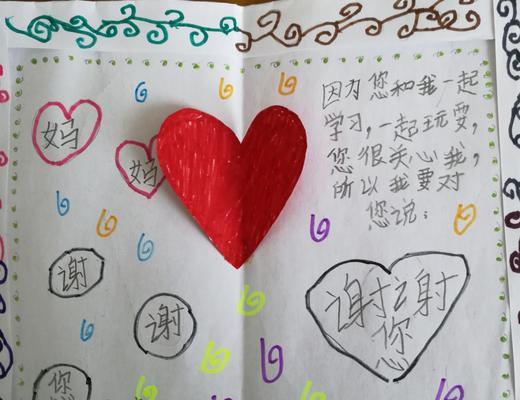 妈
妈
谢
谢
您
因为您和我一起
学习，一起玩耍，
您很关心我，
所以我要对
您说：
谢谢
您